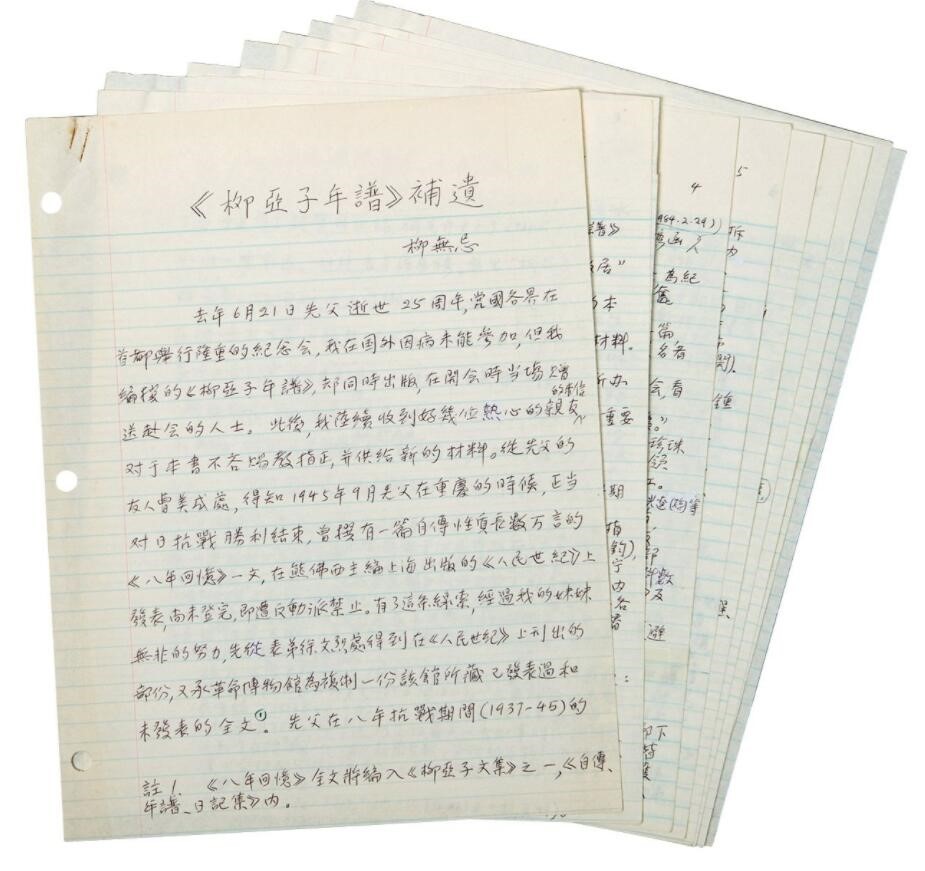 《柳亞子年譜》補遺
柳無忌
去年6月21日先父逝世25周年,党國各界在
首都舉行隆重的紀念会,我在国外因病未能參加,但我
編撰的《柳亞子年譜》,却同時出版,在開会時当場贈
送赴会的人士。此後,我陸續收到好幾位熱心的親友
对于本書不吝賜教指正,并供给新的材料。從先父的
友人曹美成處,得知1945年9月先父在重慶的時候,正当
对日抗戰勝利結束,曾撰有一篇自傳性質長數万言的
《八年回憶》一文,在熊佛西主編上海出版的《人民世紀》上
發表,尚未登完,即遭反動派禁止。有了這条綫索,經過我的妹妹
無非的努力,先從表弟徐文烈處得到在《人民世紀》上刊出的
部份,又承革命博物館為複制一份該館所藏已發表過和
未發表的全文①。先父在八年抗戰期間(1937-45)的
註1. 《八年回憶》全文將編入《柳亞子文集》之一,《自傳、
年譜、日記集》内。
4
5
譜》
居"
本
材料。
办
重要
期
984.2.29)
為紀
篇
名者
会,看
珍珠
領
數
及
避
拆
内
鍾
下